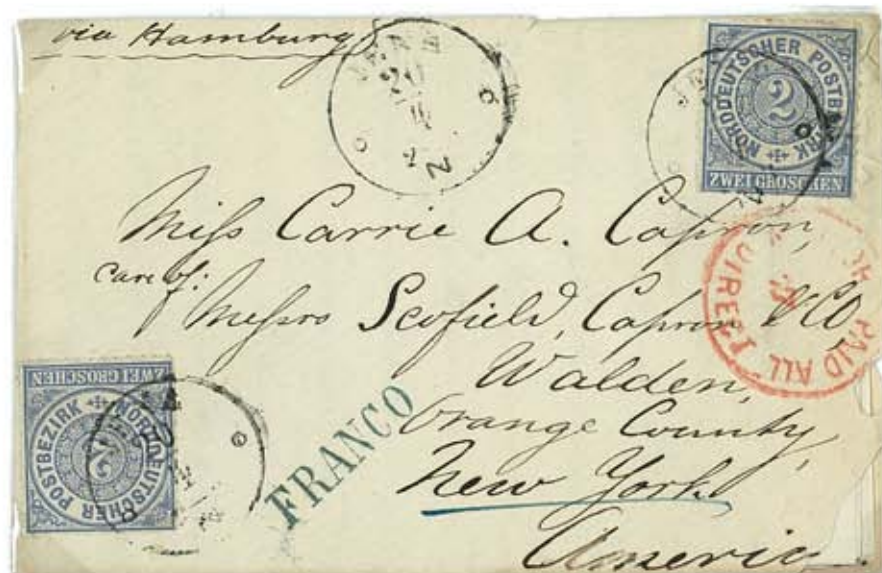 via Hamburg
NORDDEUTSCHER POSTBEZIRK
2
ZWEI GROSCHEN
Miss Carrie A. Capron,
care of:
Messrs Scofield, Capron & Co,
PAID ALL
DIRECT
Walden,
Orange County,
New York.
America
FRANCO
NORDDEUTSCHER POSTBEZIRK
2
ZWEI GROSCHEN